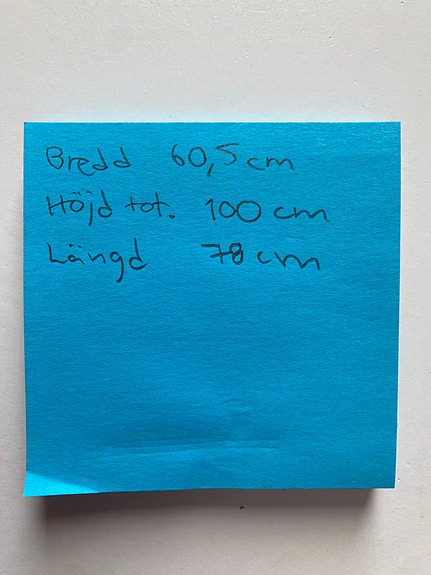 Bredd 60,5 cm
Höjd tot. 100 cm
Längd 78 cm